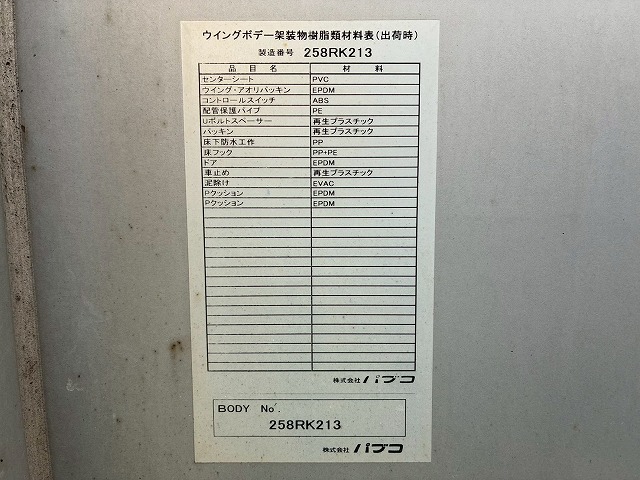 ウイングボデー架装物樹脂類材料表(出荷時)
製造番号 258RK213
品目名 材料
センターシート PVC
ウイング・アオリパッキン EPDM
コントロールスイッチ ABS
配管保護パイプ PE
Uボルトスペーサー 再生プラスチック
パッキン 再生プラスチック
床下防水工作 PP
床フック PP+PE
ドア EPDM
車止め 再生プラスチック
泥除け EVAC
Pクッション EPDM
Pクッション EPDM
株式会社 パブコ
BODY No.
258RK213
株式会社 パブコ